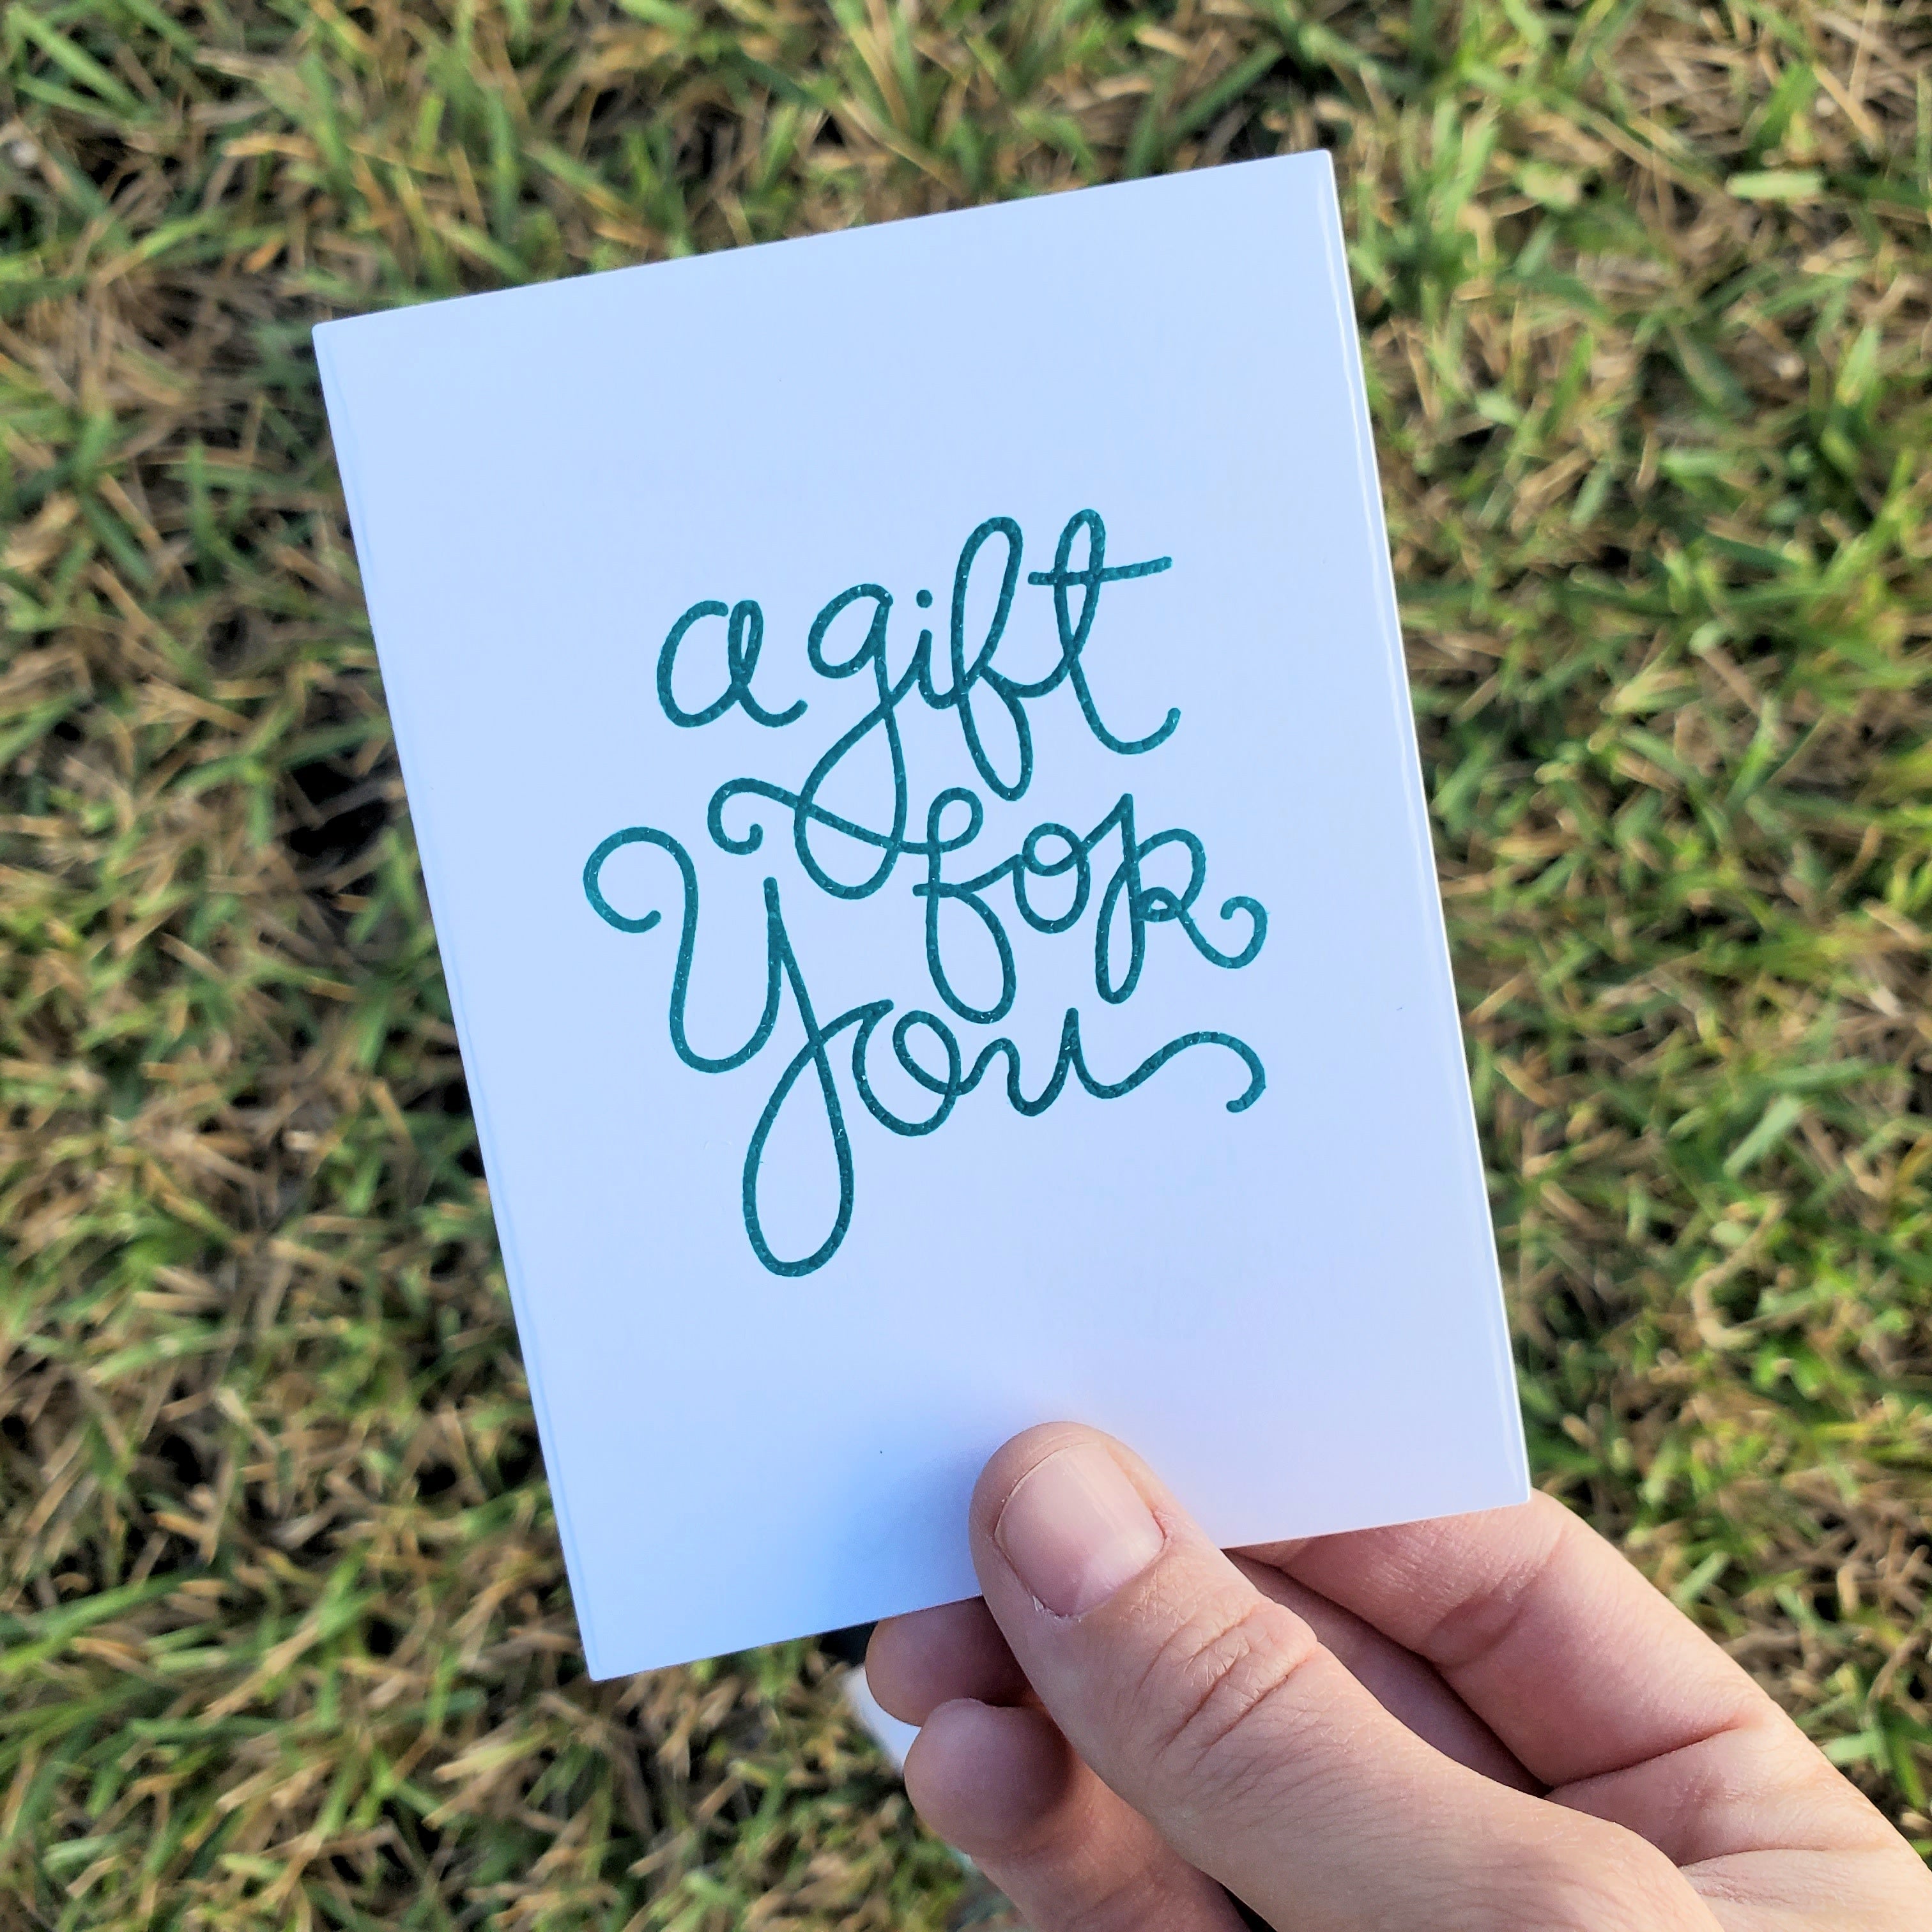 a gift
for
you